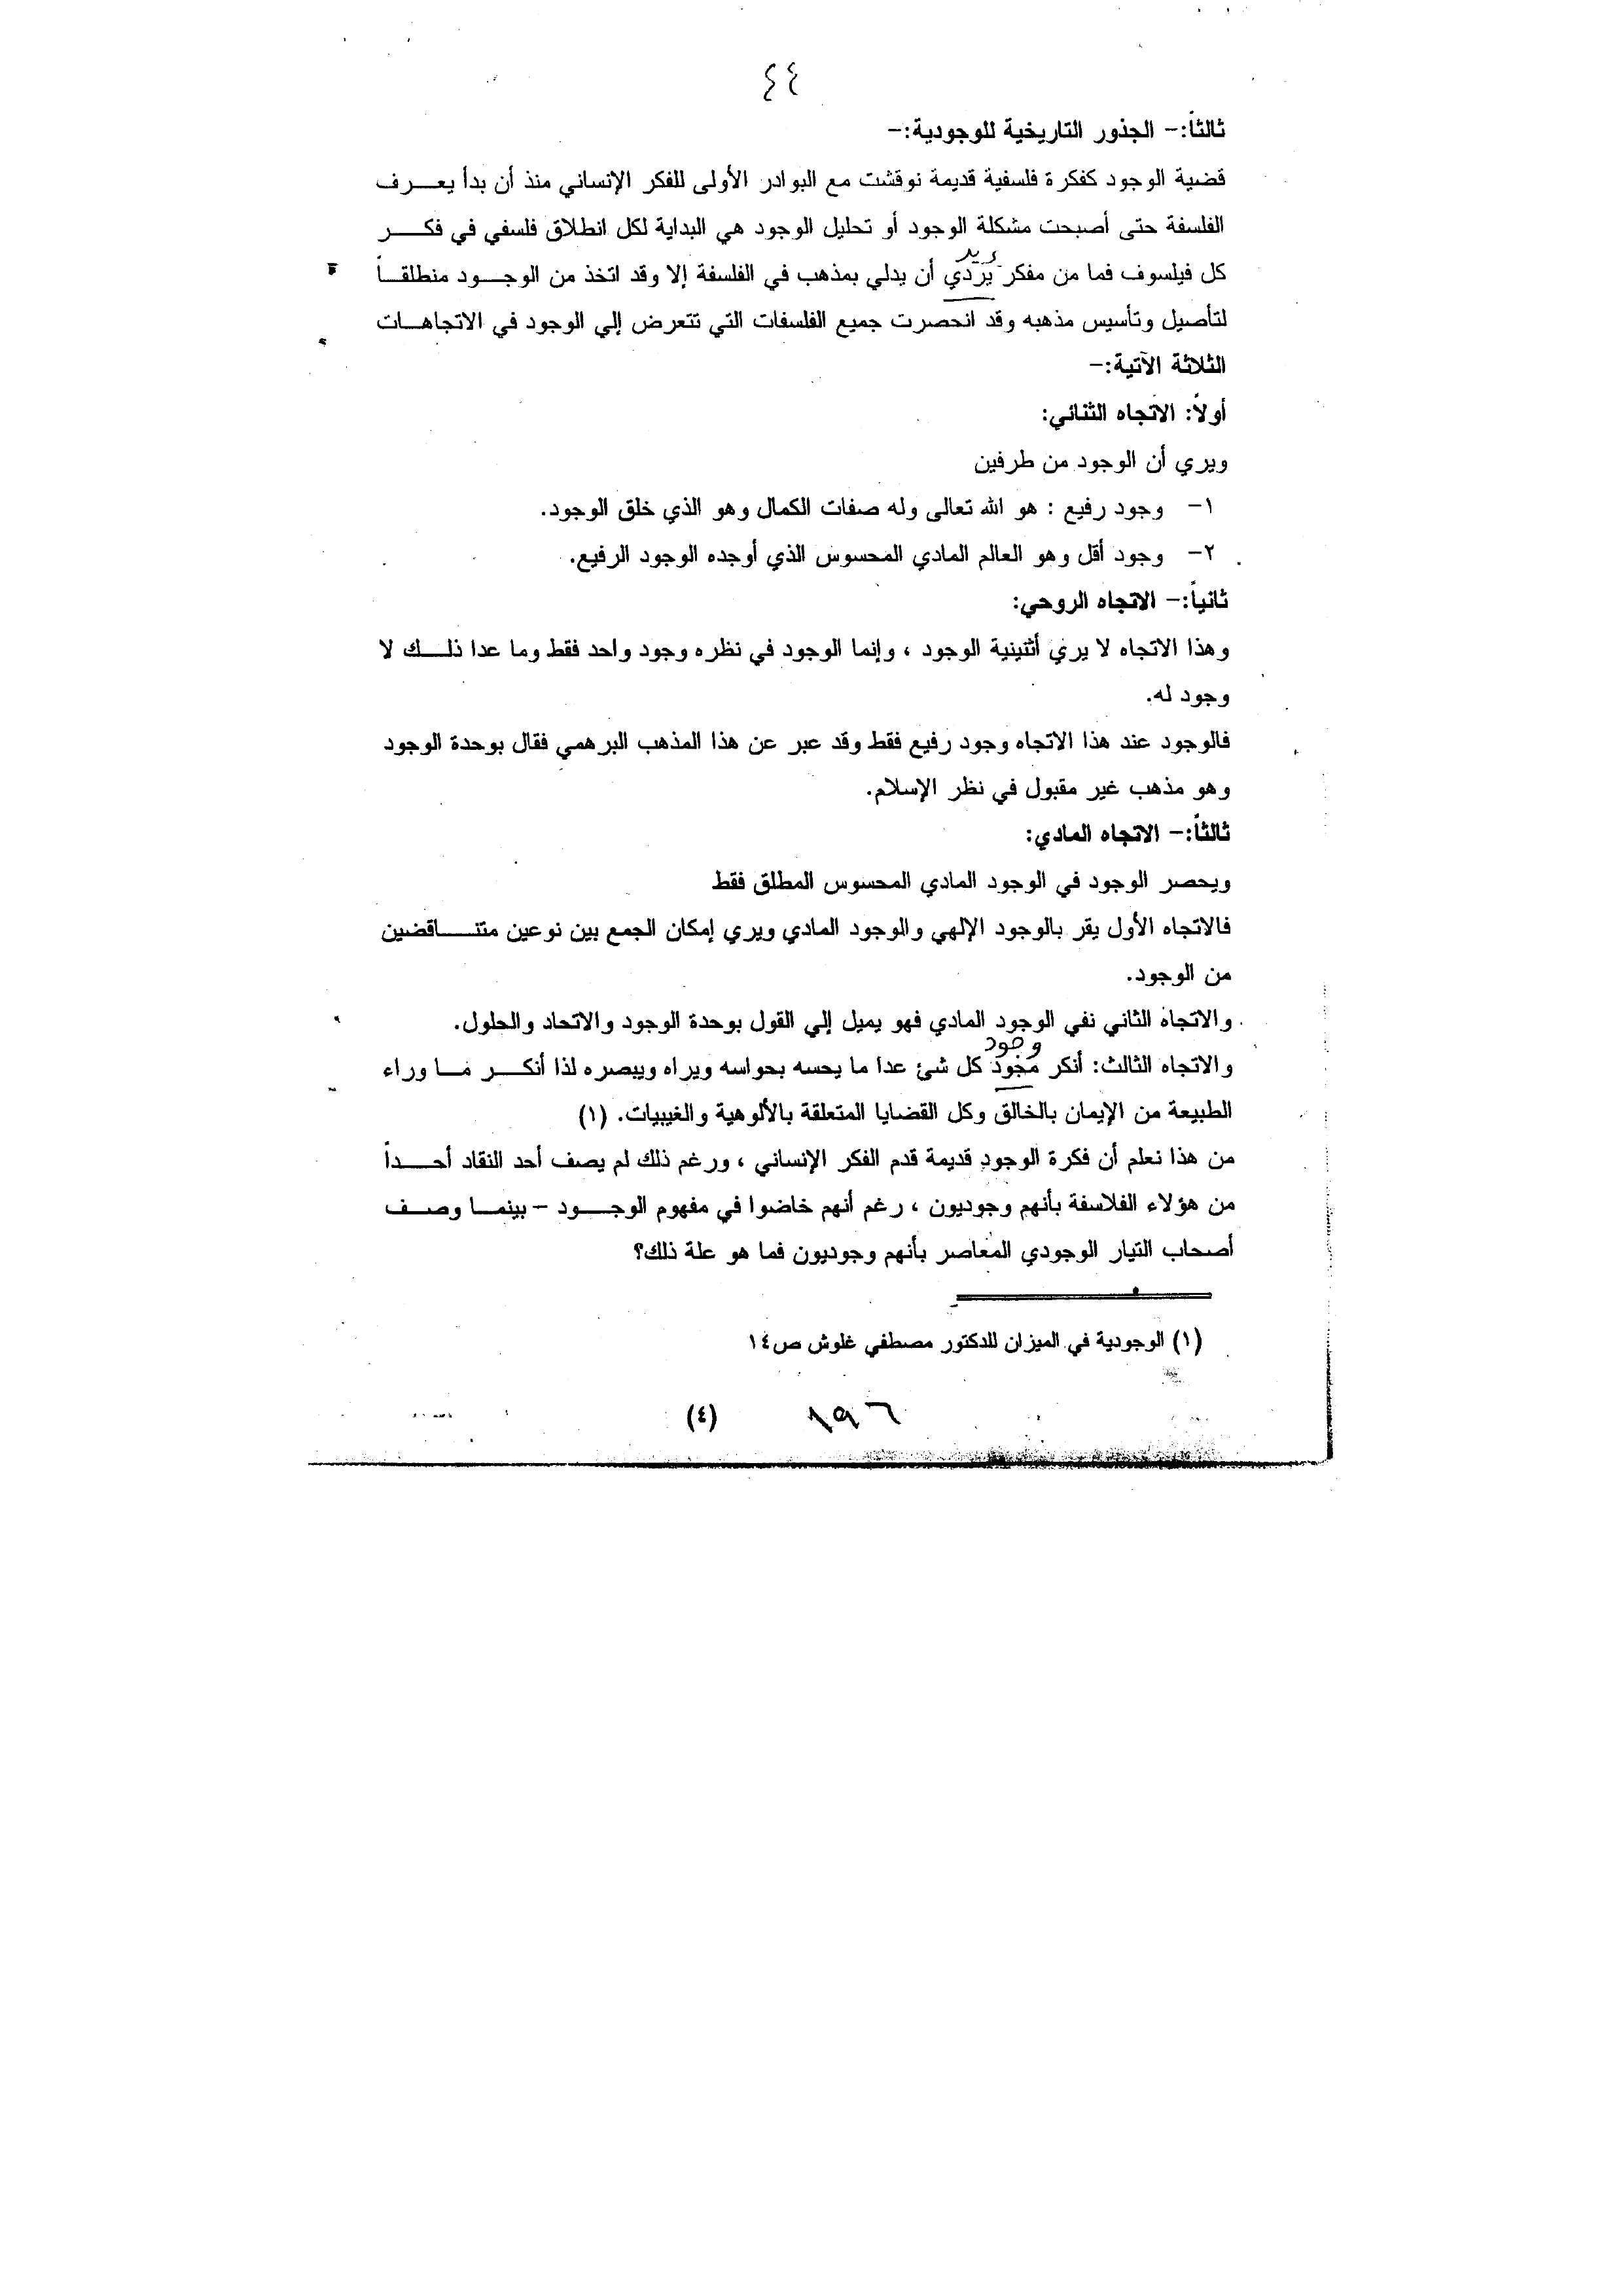 ٤٤
ثالثاً:- الجذور التاريخية للوجودية:-
قضية الوجود كفكرة فلسفية قديمة نوقشت مع البوادر الأولى للفكر الإنساني منذ أن بدأ يعـرف
الفلسفة حتى أصبحت مشكلة الوجود أو تحليل الوجود هي البداية لكل انطلاق فلسفي في فكـر
يريد
كل فيلسوف فما من مفكر يردي أن يدلي بمذهب في الفلسفة إلا وقد اتخذ من الوجـود منطلقـاً
لتأصيل وتأسيس مذهبه وقد انحصرت جميع الفلسفات التي تتعرض إلي الوجود في الاتجاهـات
الثلاثة الآتية:-
أولاً: الاتجاه الثنائي:
ويري أن الوجود من طرفين
١- وجود رفيع : هو الله تعالى وله صفات الكمال وهو الذي خلق الوجود.
٢- وجود أقل وهو العالم المادي المحسوس الذي أوجده الوجود الرفيع.
ثانياً:- الاتجاه الروحي:
وهذا الاتجاه لا يري أثنينية الوجود ، وإنما الوجود في نظره وجود واحد فقط وما عدا ذلـك لا
وجود له.
فالوجود عند هذا الاتجاه وجود رفيع فقط وقد عبر عن هذا المذهب البرهمي فقال بوحدة الوجود
وهو مذهب غير مقبول في نظر الإسلام.
ثالثاً:- الاتجاه المادي:
ويحصر الوجود في الوجود المادي المحسوس المطلق فقط
فالاتجاه الأول يقر بالوجود الإلهي والوجود المادي ويري إمكان الجمع بين نوعين متنـاقضين
من الوجود.
والاتجاه الثاني نفي الوجود المادي فهو يميل إلي القول بوحدة الوجود والاتحاد والحلول.
وجود
والاتجاه الثالث: أنكر مجود كل شئ عدا ما يحسه بحواسه ويراه ويبصره لذا أنكـر مـا وراء
الطبيعة من الإيمان بالخالق وكل القضايا المتعلقة بالألوهية والغيبيات. (١)
من هذا نعلم أن فكرة الوجود قديمة قدم الفكر الإنساني ، ورغم ذلك لم يصف أحد النقاد أحـداً
من هؤلاء الفلاسفة بأنهم وجوديون ، رغم أنهم خاضوا في مفهوم الوجـود - بينمـا وصـف
أصحاب التيار الوجودي المعاصر بأنهم وجوديون فما هو علة ذلك؟
(١) الوجودية في الميزان للدكتور مصطفي غلوش ص١٤
١٩٦ (٤)